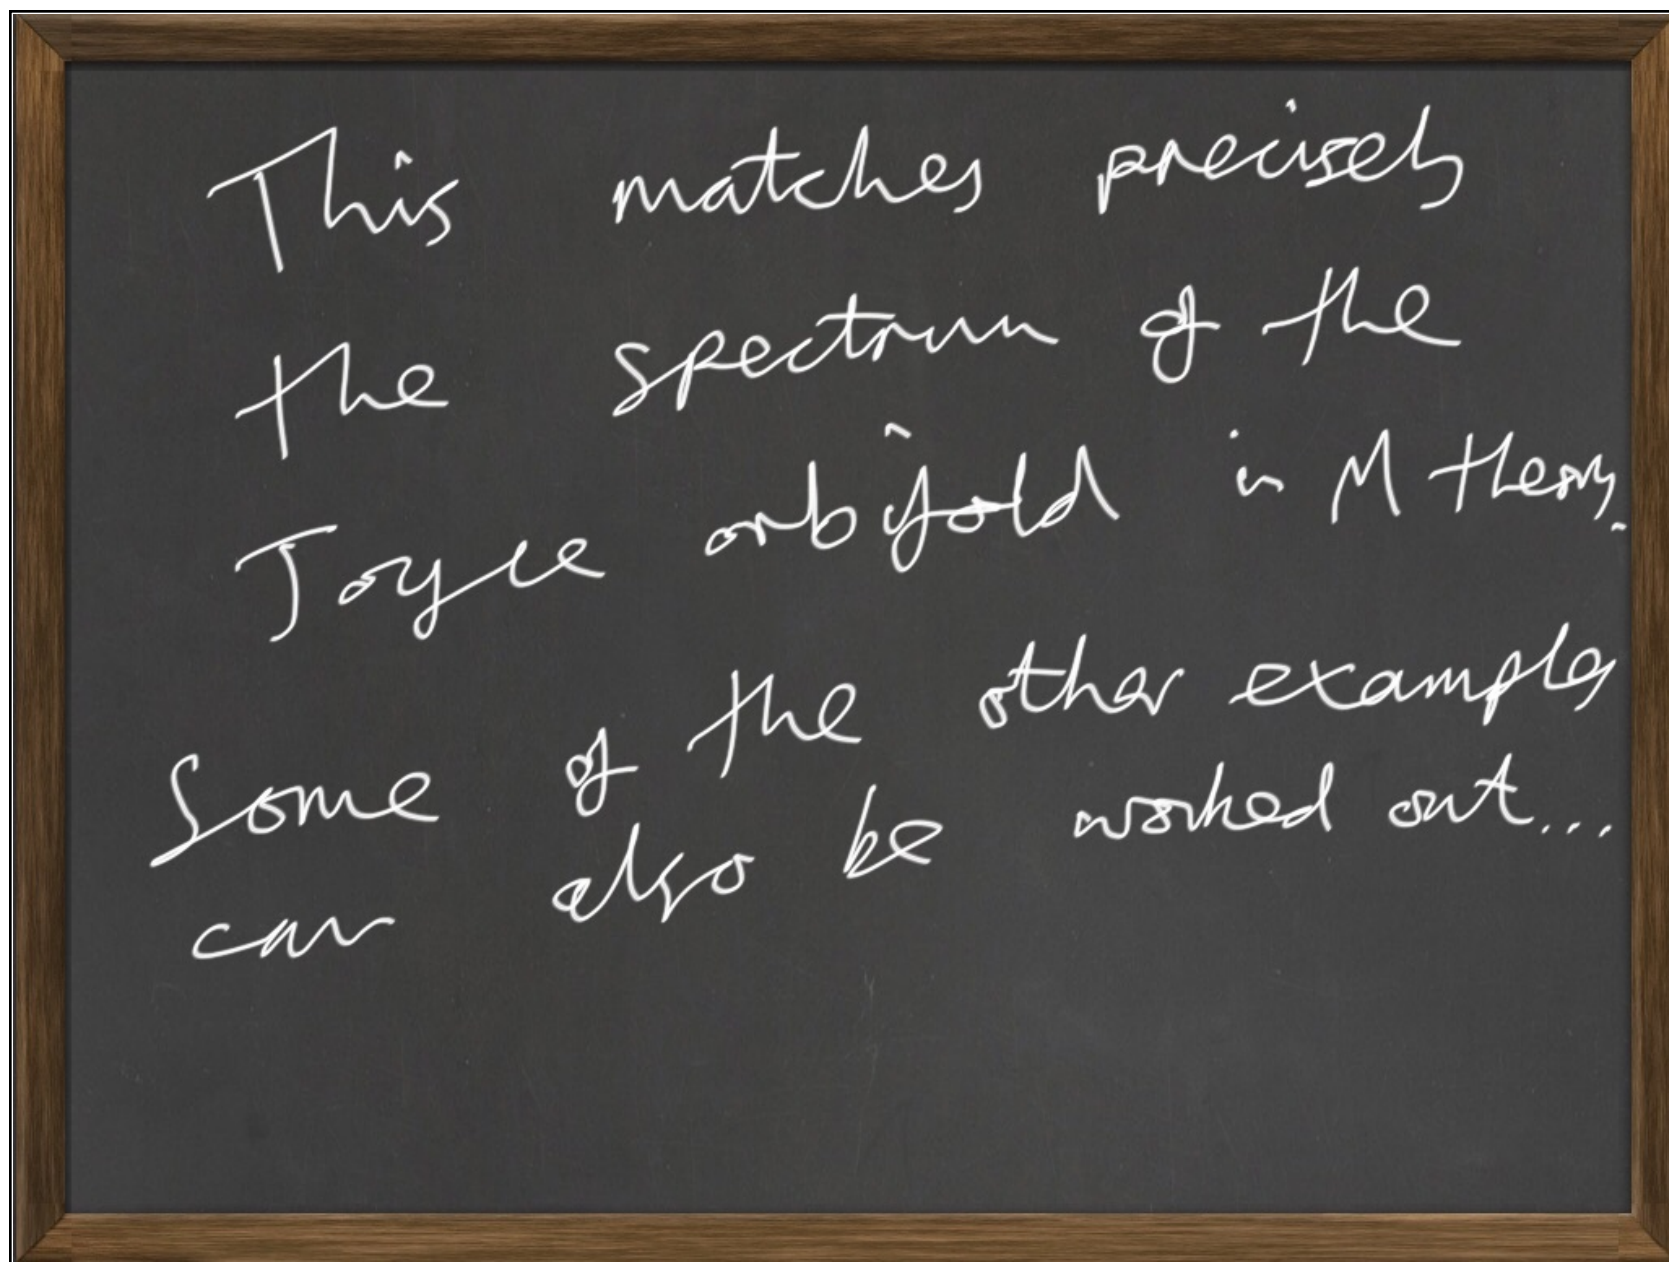 This matches precisely
the spectrum of the
Joyce orbifold in M theory.
Some of the other examples
can also be worked out...